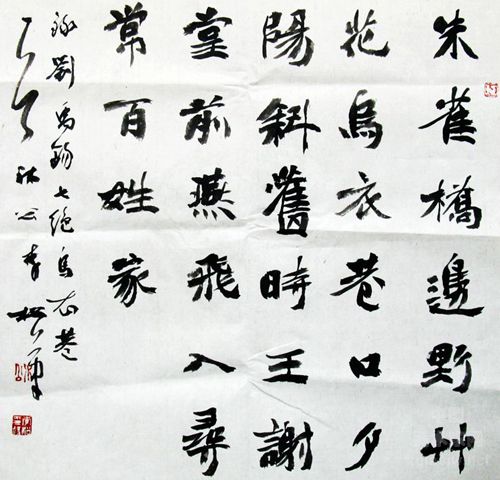 朱雀橋邊野艸
花烏衣巷口夕
陽斜舊時王謝
堂前燕飛入尋
常百姓家
錄劉禹錫七絕烏衣巷